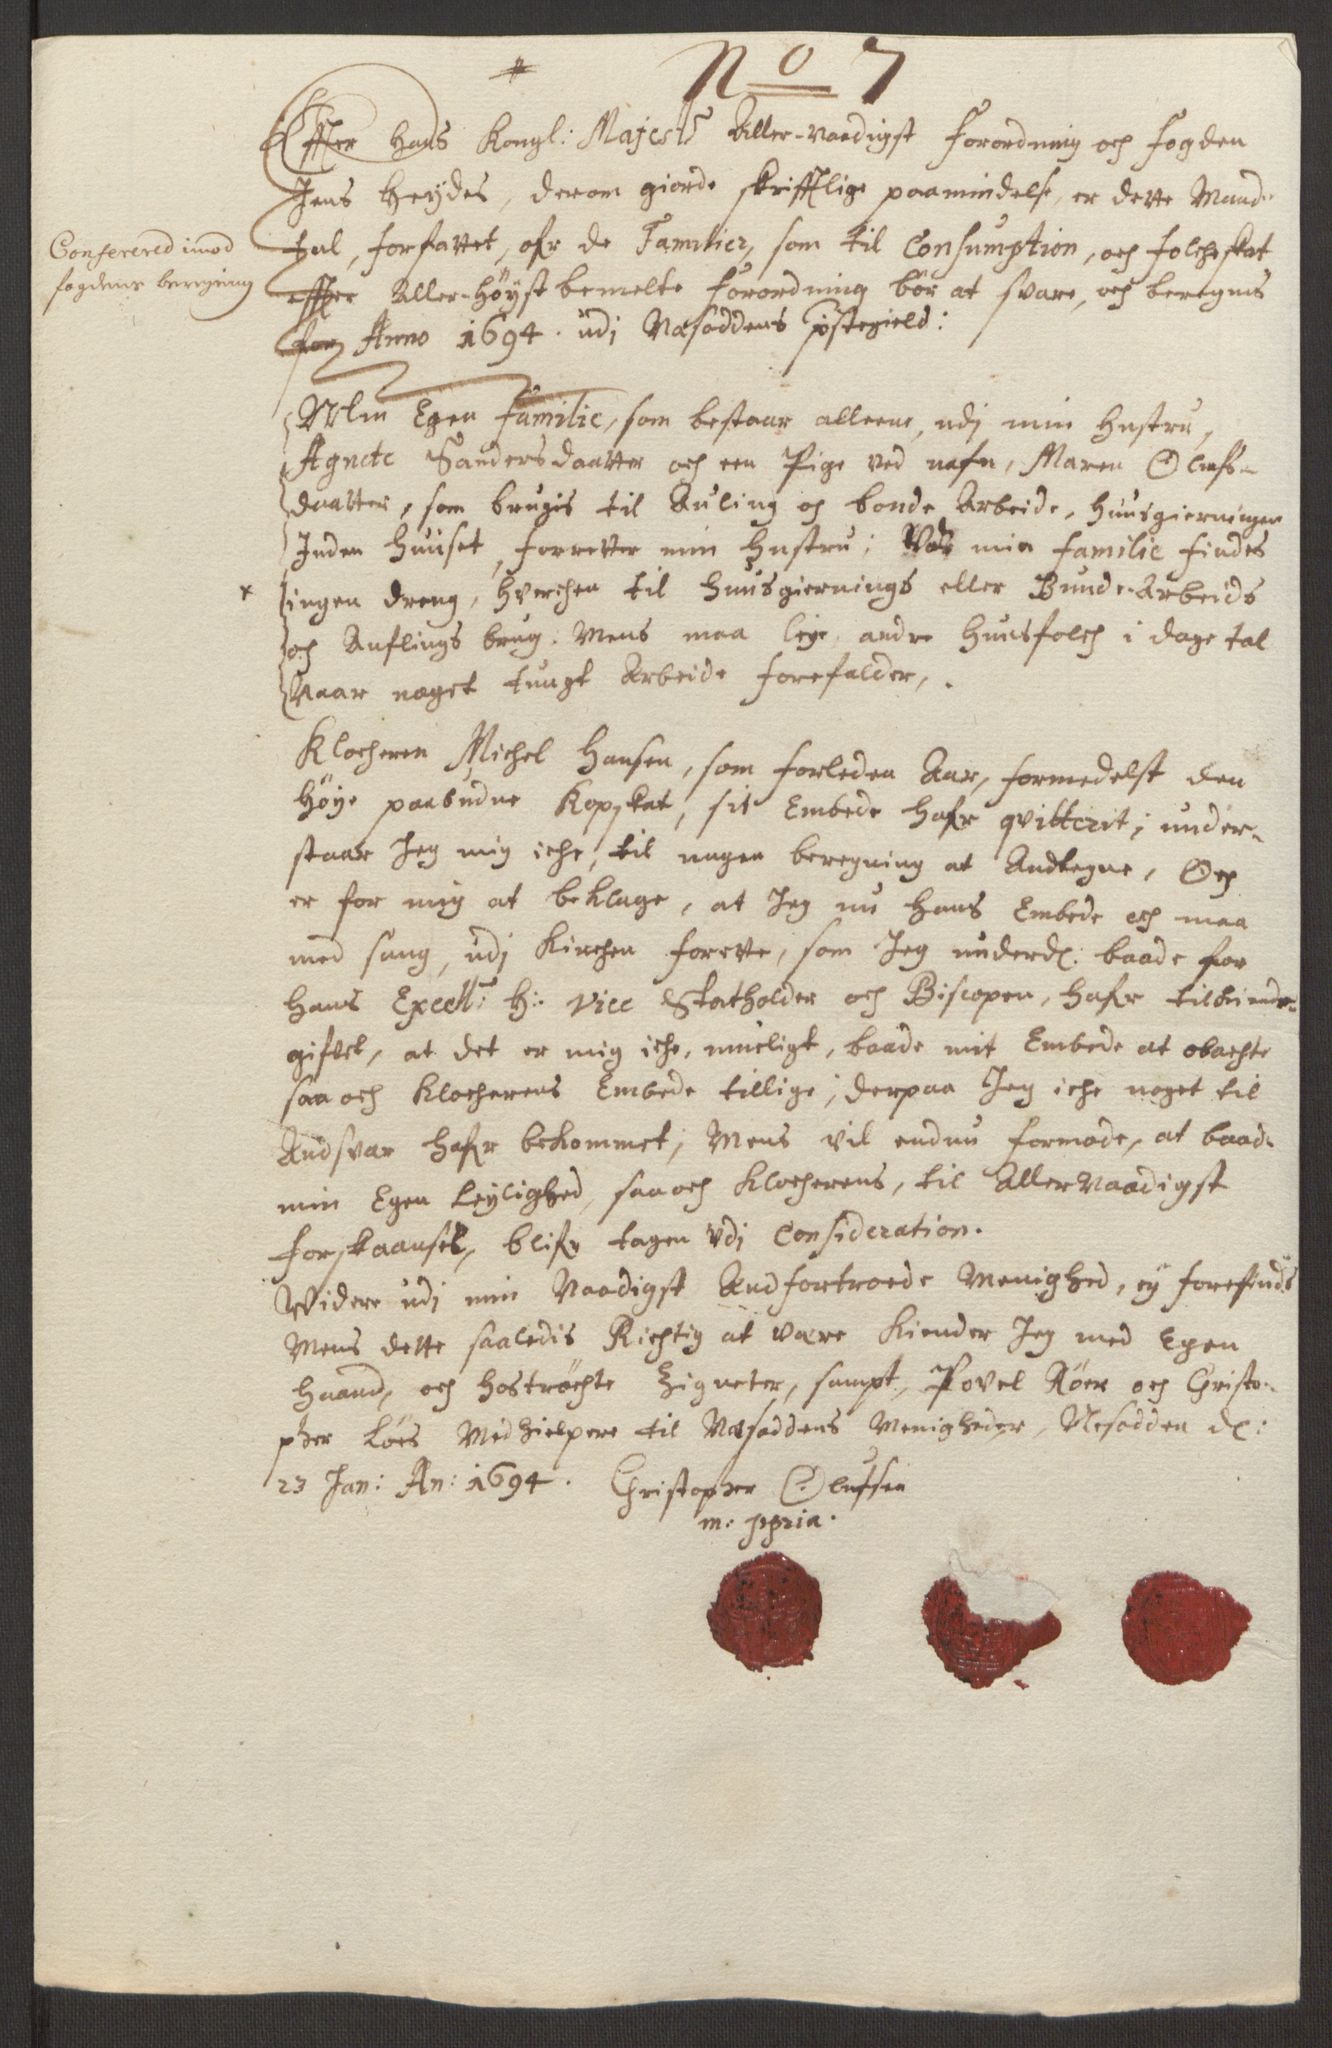 No 7
Effter Hans Kongl: Majestts Aller-naadigst Forordning och Fogden
Jens Heydes, derom giorde skrifftlige paamindelse, er dette Mand-
tal, forfattet, ofr de Familier, som til Consumption, och folcheskat
Conferered imod
fogdens beregning
effter Aller-Höyst bemelte forordning bör at svare, och beregnis
for Anno 1694. udj Næsoddens pstegield:
Min Egen Familie, som bestaar alleene, udj min Hustru,
Agnete Sandersdaatter och een Pige ved nafn, Maren Olufs-
daatter, som brugis til Auling og bonde Arbeide, huusgierningen
Inden huuset, forretter min Hustru; Ved min familie findes
ingen dreng, hverchen til huusgiernings eller Bunde-Arbeids
och Auflings brug. Mens maa leye andre huusfolch i dage tal
Naar noget tungt Arbeide forefalder,.
Klocheren Michel Hansen, som forleden Aar, formedelst den
Höye paabudne Kopskat, sit Embede hafr qvitterit; under-
staar Jeg mig iche, til nogen beregning at Andtegne, Och
er for mig at beklage, at Jeg nu hans Embede och maa
med sang, udj Kirchen forrette, som Jeg underd: baade for
Hans Excell: H: Vice Statholder och Biscopen, hafr tilkiende-
gifvet, at det er mig iche, mueligt, baade mit Embede at obachte
saa och Klocherens Embede tillige; derpaa Jeg iche noget til
Andsvar hafr bekommet; Mens vil endnu formode, at baade
min Egen Leylighed, saa och Klocherens, til Allernaadigst
forskaansel, blifr tagen Udj Consideration.
Widere udj min Naadigst Andfortroede Menighed, ey forefindes
Mens dette saaledis Richtig at være kiender Jeg med Egen
Haand, och hoströchte Zigneter, sampt, Povel Röer och Christo-
pher Löes Medhielpere til Næsoddens Menigheder, Nesodden d:
23 Jan: An: 1694. Christopher Olufsen
m: ppria.